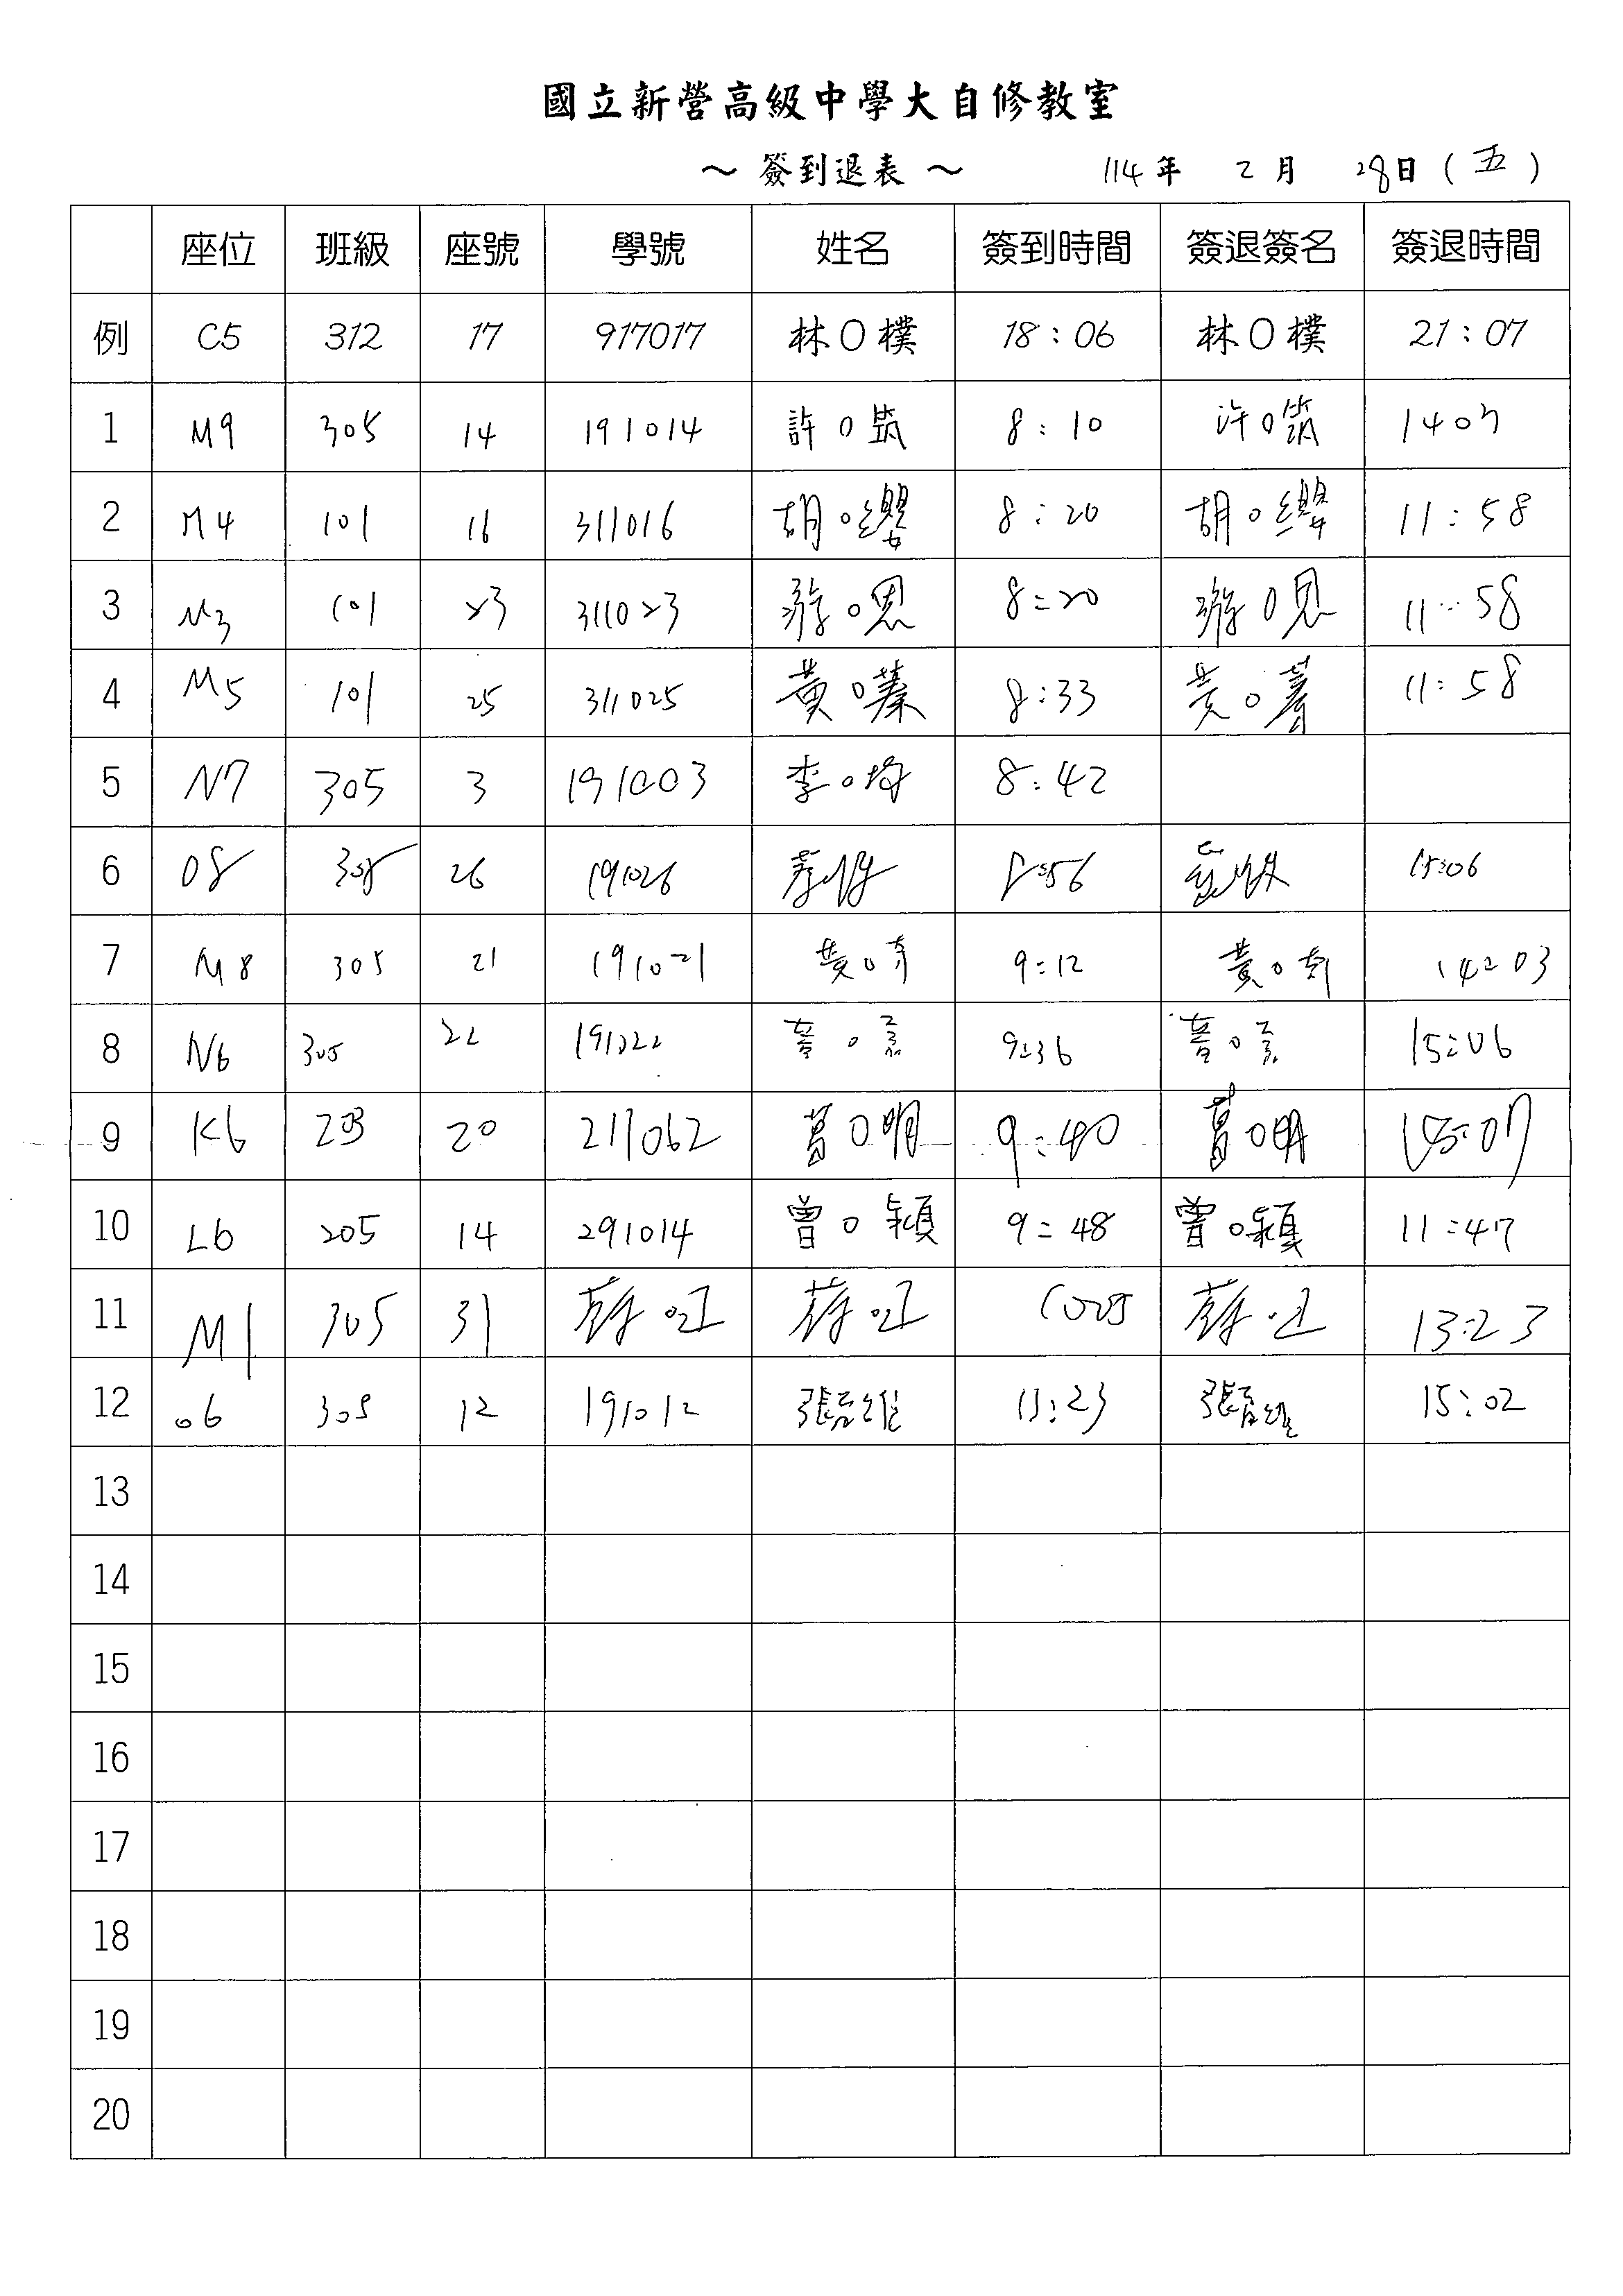 國立新營高級中學大自修教室
～ 簽到退表 ～ 114年 2月 28日(五)
座位 班級 座號 學號 姓名 簽到時間 簽退簽名 簽退時間
例 C5 312 17 917017 林O樸 18:06 林O樸 21:07
1 M9 305 14 191014 許O筑 8:10 許O筑 1407
2 M4 101 16 311016 胡O纓 8:20 胡O纓 11:58
3 M3 101 23 311023 游O恩 8:20 游O恩 11:58
4 M5 101 25 311025 黃O蓁 8:33 黃O蓁 11:58
5 N7 305 3 191003 李O 8:42
6 O8 305 26 191026 8:56 15:06
7 M8 305 21 191021 黃O 9:12 黃O 14:03
8 N6 305 22 191022 9:36 15:06
9 K6 203 20 211062 葛O明 9:40 葛O明 15:07
10 L6 205 14 291014 曾O穎 9:48 曾O穎 11:47
11 M1 305 31 13:23
12 O6 305 12 191012 張 11:23 張 15:02
13
14
15
16
17
18
19
20